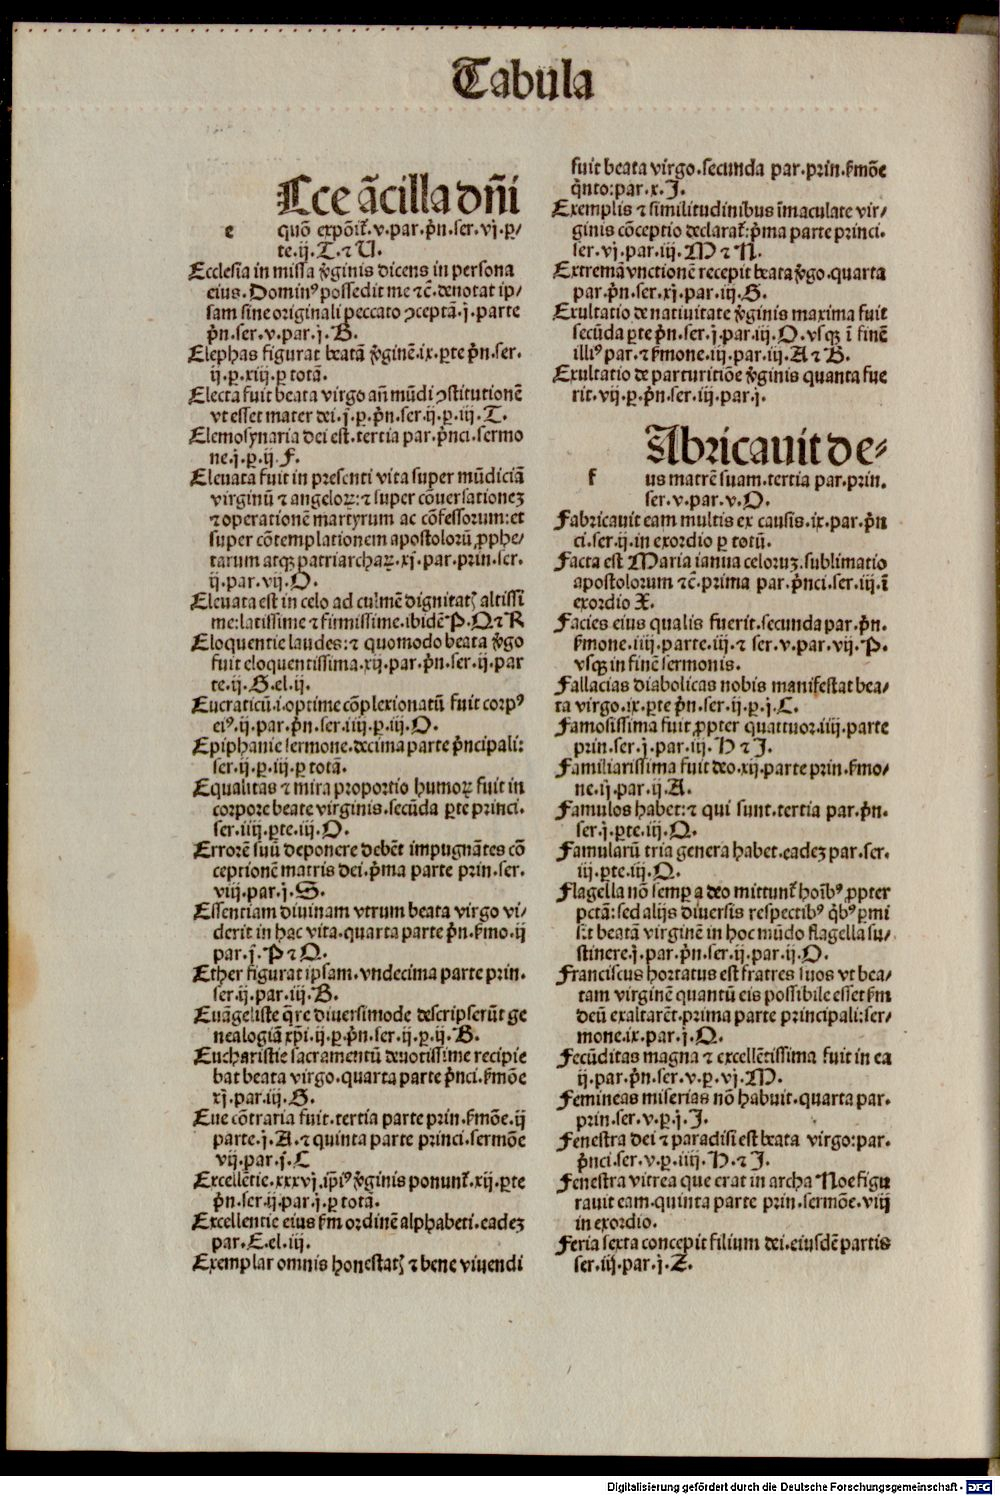 Tabula
Ecce ācilla dn̄i
e quō expōit᷑.v.par.pn̄.ser.vj.p̱/
te.ij.T.⁊ U.
Ecclesia in missa v̓ginis dicens in persona
eius.Dominꝰ possedit me ⁊c̄.denotat ip/
sam sine originali peccato ꝯceptā.j.parte
pn̄.ser.v.par.j.B.
Elephas figurat beatā v̓ginē.ix.ꝑte pn̄.ser.
ij.ꝑ.xiij.ꝑ totā.
Electa fuit beata virgo an̄ mūdi ꝯstitutionē
vt esset mater dei.j.ꝑ.pn̄.ser.ij.ꝑ.iij.T.
Elemosynaria dei est.tertia par.pn̓ci.sermo
ne.j.ꝑ.ij.F.
Eleuata fuit in presenti vita super mūdiciā
virginū ⁊ angeloꝝ:⁊ super cōuersationeʒ
⁊ operationē martyrum ac cōfessorum:et
super cōtemplationem apostolorū ꝓphe/
tarum atqꝫ patriarchaꝝ.xj.par.prin.ser.
ij.par.vij.O.
Eleuata est in celo ad culmē dignitatꝭ altissi
me:latissime ⁊ firmissime.ibidē P.Q ⁊ R
Eloquentie laudes:⁊ quomodo beata v̓go
fuit eloquentissima.xij.par.pn̄.ser.ij.par
te.ij.G.el.ij.
Eucraticū.i.optime cōplexionatū fuit corpꝰ
eiꝰ.ij.par.pn̄.ser.iiij.ꝑ.iij.O.
Epiphanie sermone.decima parte pn̓cipali:
ser.ij.ꝑ.iij.ꝑ totā.
Equalitas ⁊ mira proportio humoꝝ fuit in
corpore beate virginis.secūda ꝑte princi.
ser.iiij.ꝑte.iij.O.
Errorē suū deponere debēt impugnātes cō
ceptionē matris dei.pm̓a parte prin.ser.
viij.par.j.S.
Essentiam diuinam vtrum beata virgo vi/
derit in hac vita.quarta parte pn̄.ẜmo.ij
par.j.P ⁊ Q.
Ether figurat ipsam.vndecima parte prin.
ser.ij.par.iij.B.
Euāgeliste qr̄e diuersimode descripserūt ge
nealogiā xp̄i.ij.ꝑ.pn̄.ser.ij.ꝑ.ij.B.
Eucharistie sacramentū deuotissime recipie
bat beata virgo.quarta parte pn̓ci.ẜmōe
xj.par.iij.G.
Eue cōtraria fuit.tertia parte prin.ẜmōe.ij
parte.j.A.⁊ quinta parte princi.sermōe
vij.par.j.C
Excellētie.xxxvj.ip̄iꝰ v̓ginis ponunt᷑.xij.ꝑte
pn̄.ser.ij.par.j.ꝑ totā.
Excellentie eius ẜm ordinē alphabeti.eadeʒ
par.E.el.iij.
Exemplar omnis honestatꝭ ⁊ bene viuendi
fuit beata virgo.secunda par.prin.ẜmōe
qn̓to:par.x.J.
Exemplis ⁊ similitudinibus īmaculate vir/
ginis cōceptio declarat᷑:pm̓a parte princi.
ser.vj.par.iij.M ⁊ N.
Extremā vnctionē recepit beata v̓go.quarta
par.pn̄.ser.xj.par.iij.G.
Exultatio de natiuitate v̓ginis maxima fuit
secūda ꝑte pn̄.ser.j.par.iij.O.vsqꝫ ī finē
illiꝰ par.⁊ ẜmone.iij.par.iij.A ⁊ B.
Exultatio de parturitiōe v̓ginis quanta fue
rit.vij.ꝑ.pn̄.ser.iij.par.j.
Fabricauit de-
f us matrē suam.tertia par.prin.
ser.v.par.v.O.
Fabricauit eam multis ex causis.ix.par.pn̄
ci.ser.ij.in exordio ꝑ totū.
Facta est Maria ianua celoruʒ.sublimatio
apostolorum ⁊c̄.prima par.pn̓ci.ser.iij.ī
exordio X.
Facies eius qualis fuerit.secunda par.pn̄.
ẜmone.iiij.parte.iij.⁊ ser.v.par.vij.P.
vsqꝫ in finē sermonis.
Fallacias diabolicas nobis manifestat bea/
ta virgo.ix.ꝑte pn̄.ser.ij.ꝑ.j.C.
Famosissima fuit ꝓpter quattuor.iiij.parte
prin.ser.j.par.iij.H ⁊ J.
Familiarissima fuit deo.xij.parte prin.ẜmo/
ne.ij.par.ij.A.
Famulos habet:⁊ qui sunt.tertia par.pn̄.
ser.j.ꝑte.iij.Q.
Famularū tria genera habet.eadeʒ par.ser.
iij.ꝑte.iij.Q.
Flagella nō semꝑ a deo mittunt᷑ hoīb⁹ ꝓpter
pctā:sed alijs diuersis respectib⁹ qb̓⁹ ꝑmi
sit beatā virginē in hoc mūdo flagella su/
stinere.j.par.pn̄.ser.ij.par.ij.O.
Franciscus hortatus est fratres suos vt bea/
tam virginē quantū eis possibile esset ẜm
deū exaltarēt.prima parte principali:ser/
mone.ix.par.j.Q.
Fecūditas magna ⁊ excellētissima fuit in ea
ij.par.pn̄.ser.v.ꝑ.vj.M.
Femineas miserias nō habuit.quarta par.
prin.ser.v.ꝑ.j.J.
Fenestra dei ⁊ paradisi est beata virgo:par.
pn̓ci.ser.v.ꝑ.iiij.H.⁊ J.
Fenestra vitrea que erat in archa Noe figu
rauit eam.quinta parte prin.sermōe.viij
in exordio.
Feria sexta concepit filium dei.eiusdē partis
ser.iij.par.j.Z.
Digitalisierung gefördert durch die Deutsche Forschungsgemeinschaft - DFG